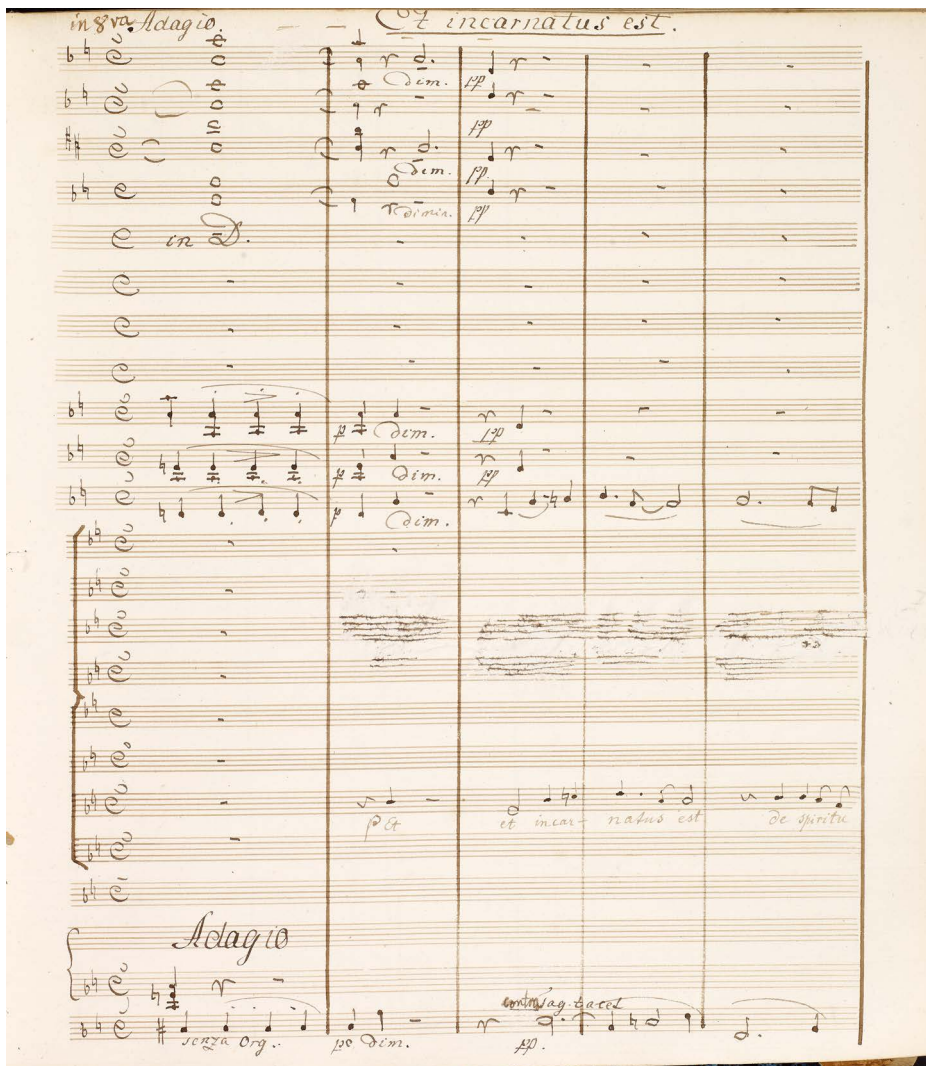 in 8va Adagio. Et incarnatus est.
dim. pp
pp
dim. pp.
dimin. pp
in D.
p dim. pp
p dim. pp
p dim.
p Et et incar- natus est de spiritu
Adagio
contra fag. tacet
senza Org. po dim. pp.